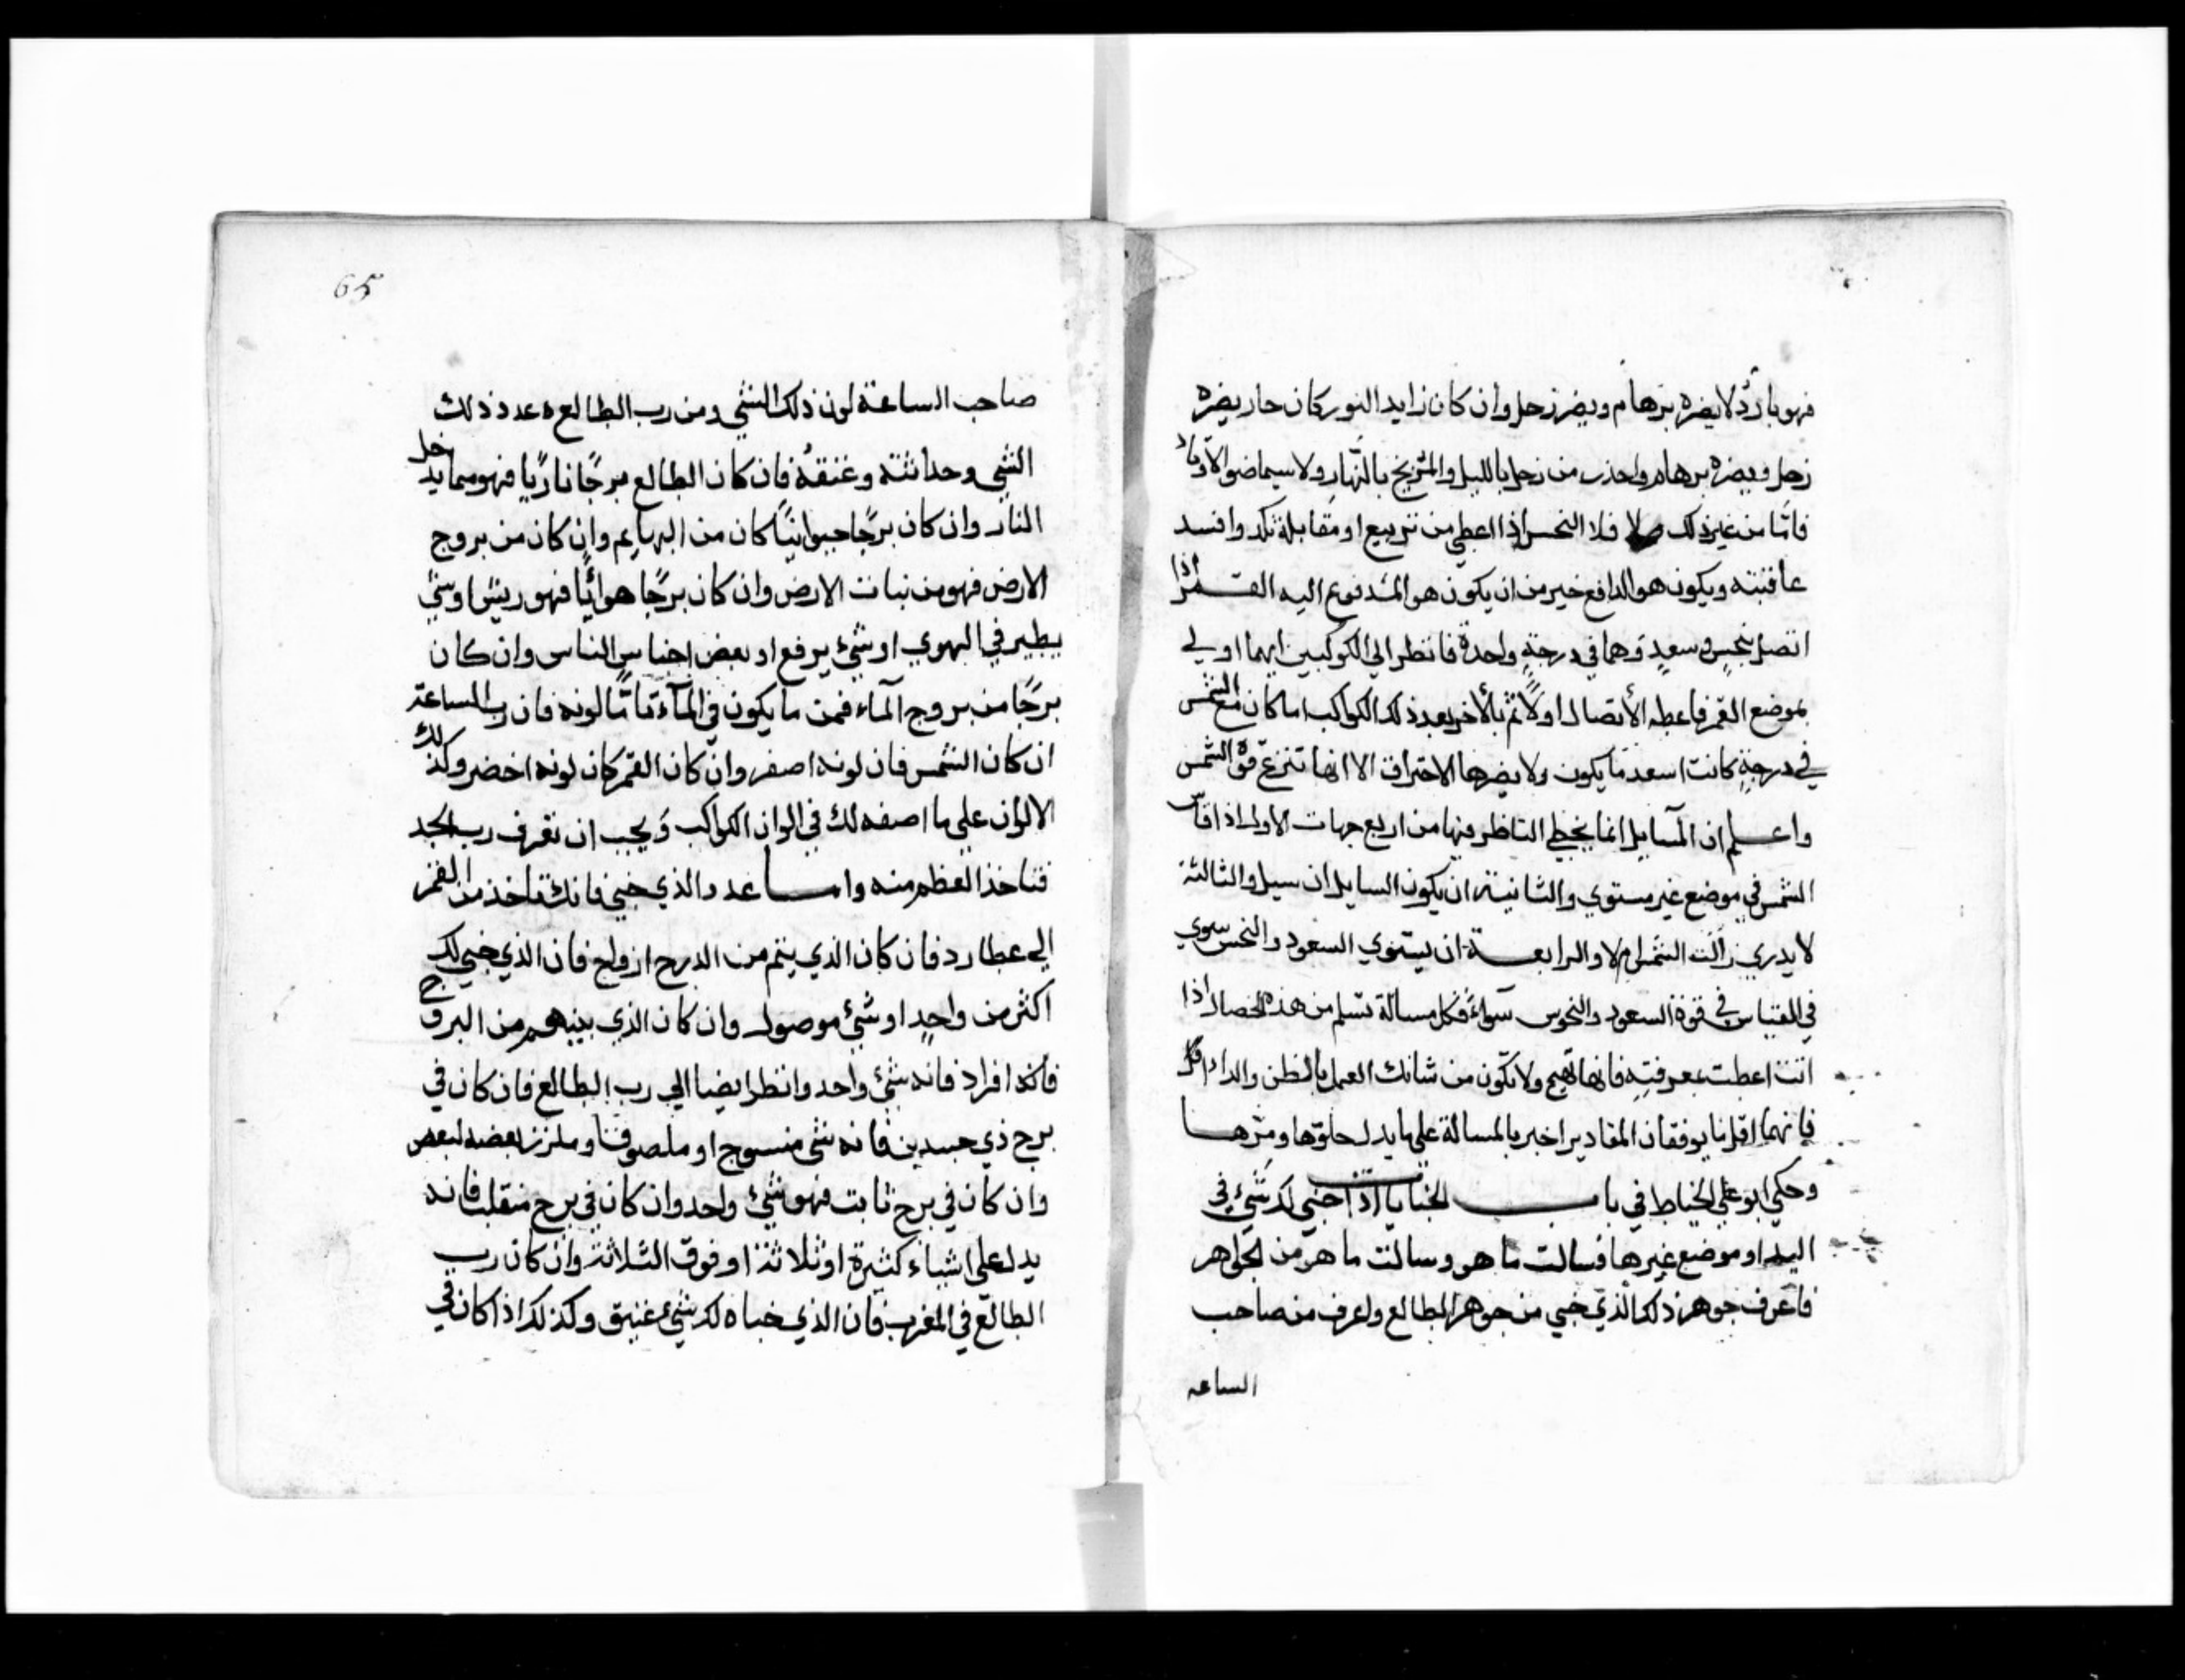 فهو بارد لا يضره برهام ويضر زحل وان كان زايد النور كان حار يضره
زحل ويضره برهام واحذر من زحل بالليل والمريخ بالنهار ولا سيما ضو الاوتاد
فاما من غير ذلك فلا النحس اذا اعطي من تربيع او مقابلة نكد وافسد
عاقبته ويكون هو الدافع خير من ان يكون هو المدفوع اليه القمر اذا
اتصل بنحس وسعد وهما في درجة واحدة فانظر الي الكوكبين ايهما اولي
بموضع القمر فاعطه الأتصال اولاً ثم بالأخر بعد ذلك الكواكب اما كان مع الشمس
في درجة كانت اسعد ما يكون ولا يضرها الاحتراق الا انها تنزع قوة الشمس
واعلم ان المسايل انما يخطي الناظر فيها من اربع جهات الاولي اذا قاس
الشمس في موضع غير مستوي والثانية ان يكون السايل ان سيل والثالثة
لا يدري زالت الشمس ام لا والرابعة ان يستوي السعود والنحس سوي
في القياس في قوة السعود والنحوس سواء فكل مسالة تسلم من هذه الخصال اذا
انت اعطت بمعرفته فانها تصح ولا تكون من شانك العمل بالظن والداء
فانهما اقل ما يوفقان المقادير اخبر بالمسالة علي ما يدل حلوها ومرها
وحكي ابو علي الخياط في باب الخبايا اذا خبي لك شيء في
اليد او موضع غيرها فسالت ما هو وسالت ما هو من الجواهر
فاعرف جوهر ذلك الذي خبي من جوهر الطالع واعرف من صاحب
الساعه
65
صاحب الساعة لون ذلك الشي ومن رب الطالع عدد ذلك
الشي وحداثته وعتقه فان كان الطالع برجًا ناريًا فهو مما يدخل
النار وان كان برجًا حيوانيًا كان من البهايم وان كان من بروج
الارض فهو من نبات الارض وان كان برجًا هوائيًا فهو ريش او شي
يطير في الهوي او شئ يرفع او بعض اجناس الناس وان كان
برجًا من بروج الماء فمن ما يكون في الماء فاما لونه فان رب الساعة
ان كان الشمس فان لونه اصفر وان كان القمر كان لونه اخضر وكذلك
الالوان علي ما اصفه لك في الوان الكواكب ويجب ان تعرف رب الحد
فتاخذ العظم منه واما عدد الذي خبي فانك تاخذ من القمر
الي عطارد فان كان الذي يتم من الدرج ازواج فان الذي خبي لك
اكثر من واحد او شئ موصول وان كان الذي بينهم من البروج
فانه افراد فانه شئ واحد وانظر ايضا الي رب الطالع فان كان في
برج ذي جسدين فانه شي منسوج او ملصوقا وملزز بعضه لبعض
وان كان في برج ثابت فهو شئ واحد وان كان في برج منقلب فانه
يدل علي اشياء كثيرة او ثلاثة او فوق الثلاثة وان كان رب
الطالع في المغرب فان الذي خباه لك شئ عتيق وكذلك اذا كان في